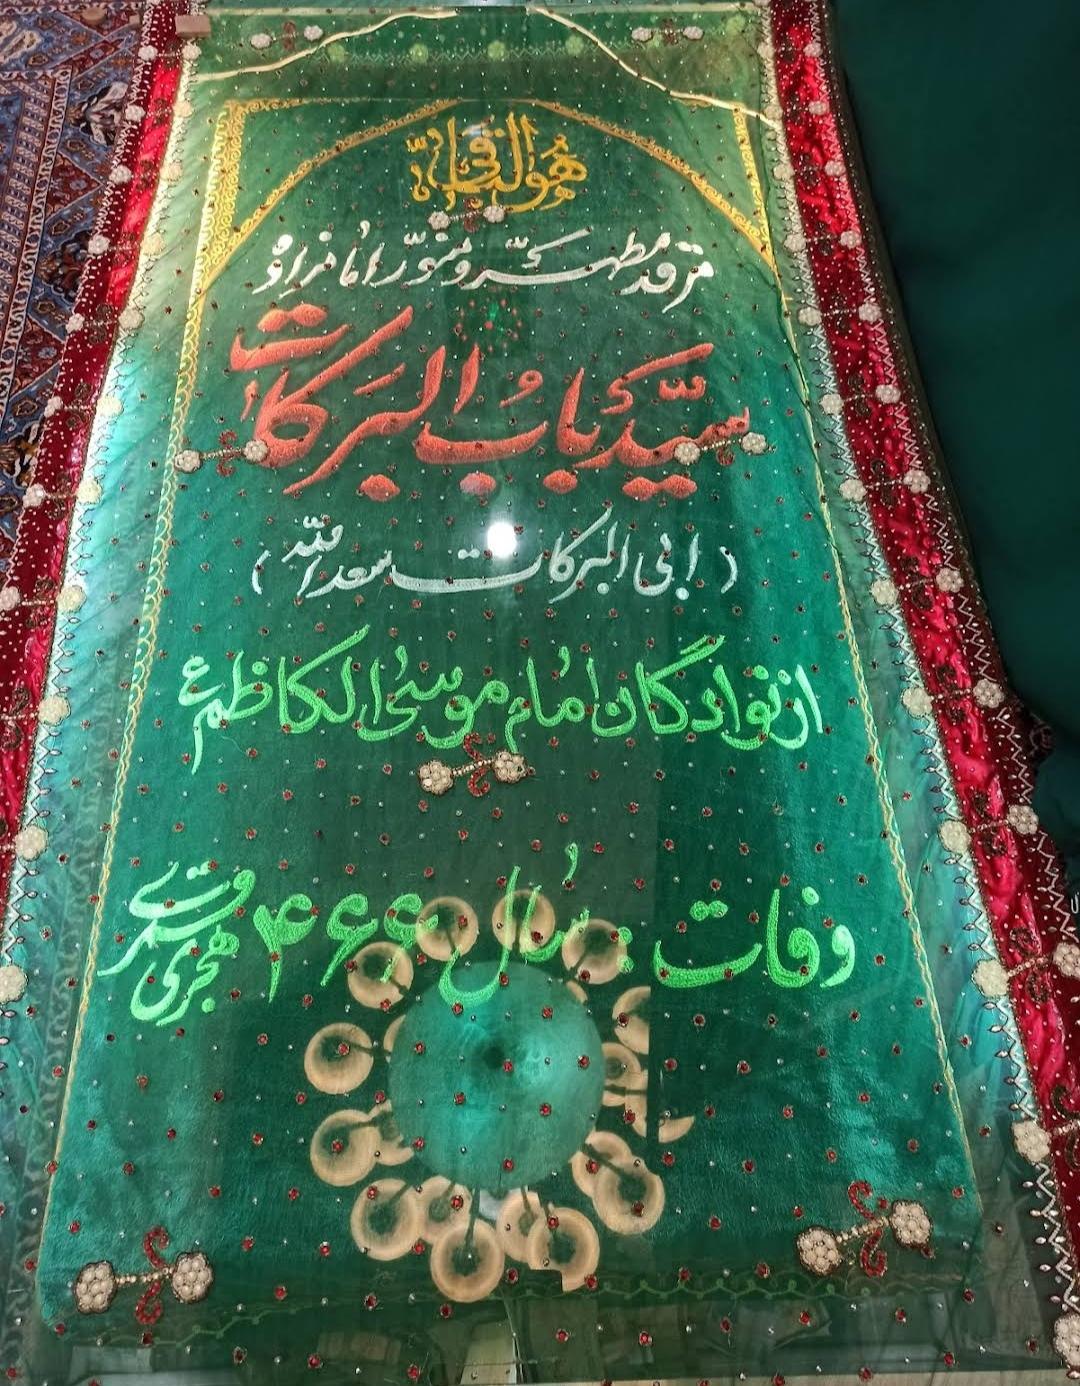 هُوَالباقی
مرقد مطهّر و منوّر امامزاده
سیّد باب البَرَکات
( ابی البرکات سعدالله )
از نوادگان امام موسی الکاظم ع
وفات : سال ۴۶۶ هجری قمری